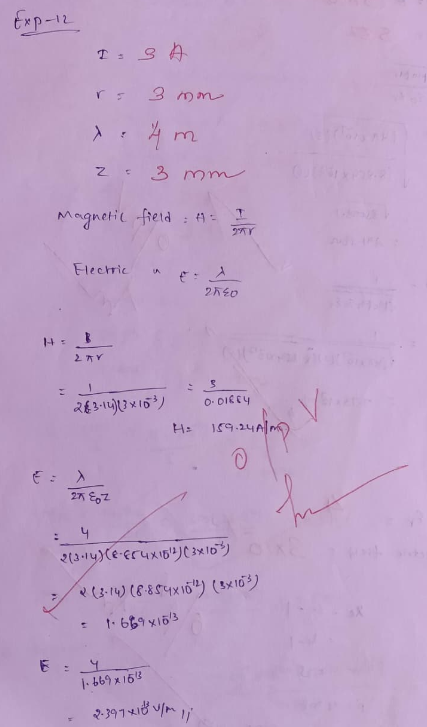 Exp-12
I = 3 A
r = 3 mm
λ = 4 m
z = 3 mm
Magnetic field : H = I / 2πr
Electric " E = λ / 2πε0
H = I / 2πr
= 1 / 2(3.14)(3×10⁻³) = 3 / 0.01884
H = 159.24 A/m
o/p V
E = λ / 2πε0z
= 4 / 2(3.14)(8.854×10⁻¹²)(3×10⁻³)
= 2(3.14)(8.854×10⁻¹²)(3×10⁻³)
= 1.669×10⁻¹³
E = 4 / 1.669×10⁻¹³